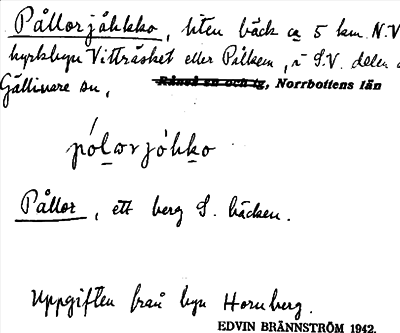 Pållorjåhkko, liten bäck ca 5 km. N.V.
kyrkbyn Vitträsket eller Pålkem, i S.V. delen
Gällivare sn, Råneå sn och tg, Norrbottens län
pólɷrjóhko
Pållor, ett berg S. bäcken.
Uppgiften från byn Hornberg.
EDVIN BRÄNNSTRÖM 1942.